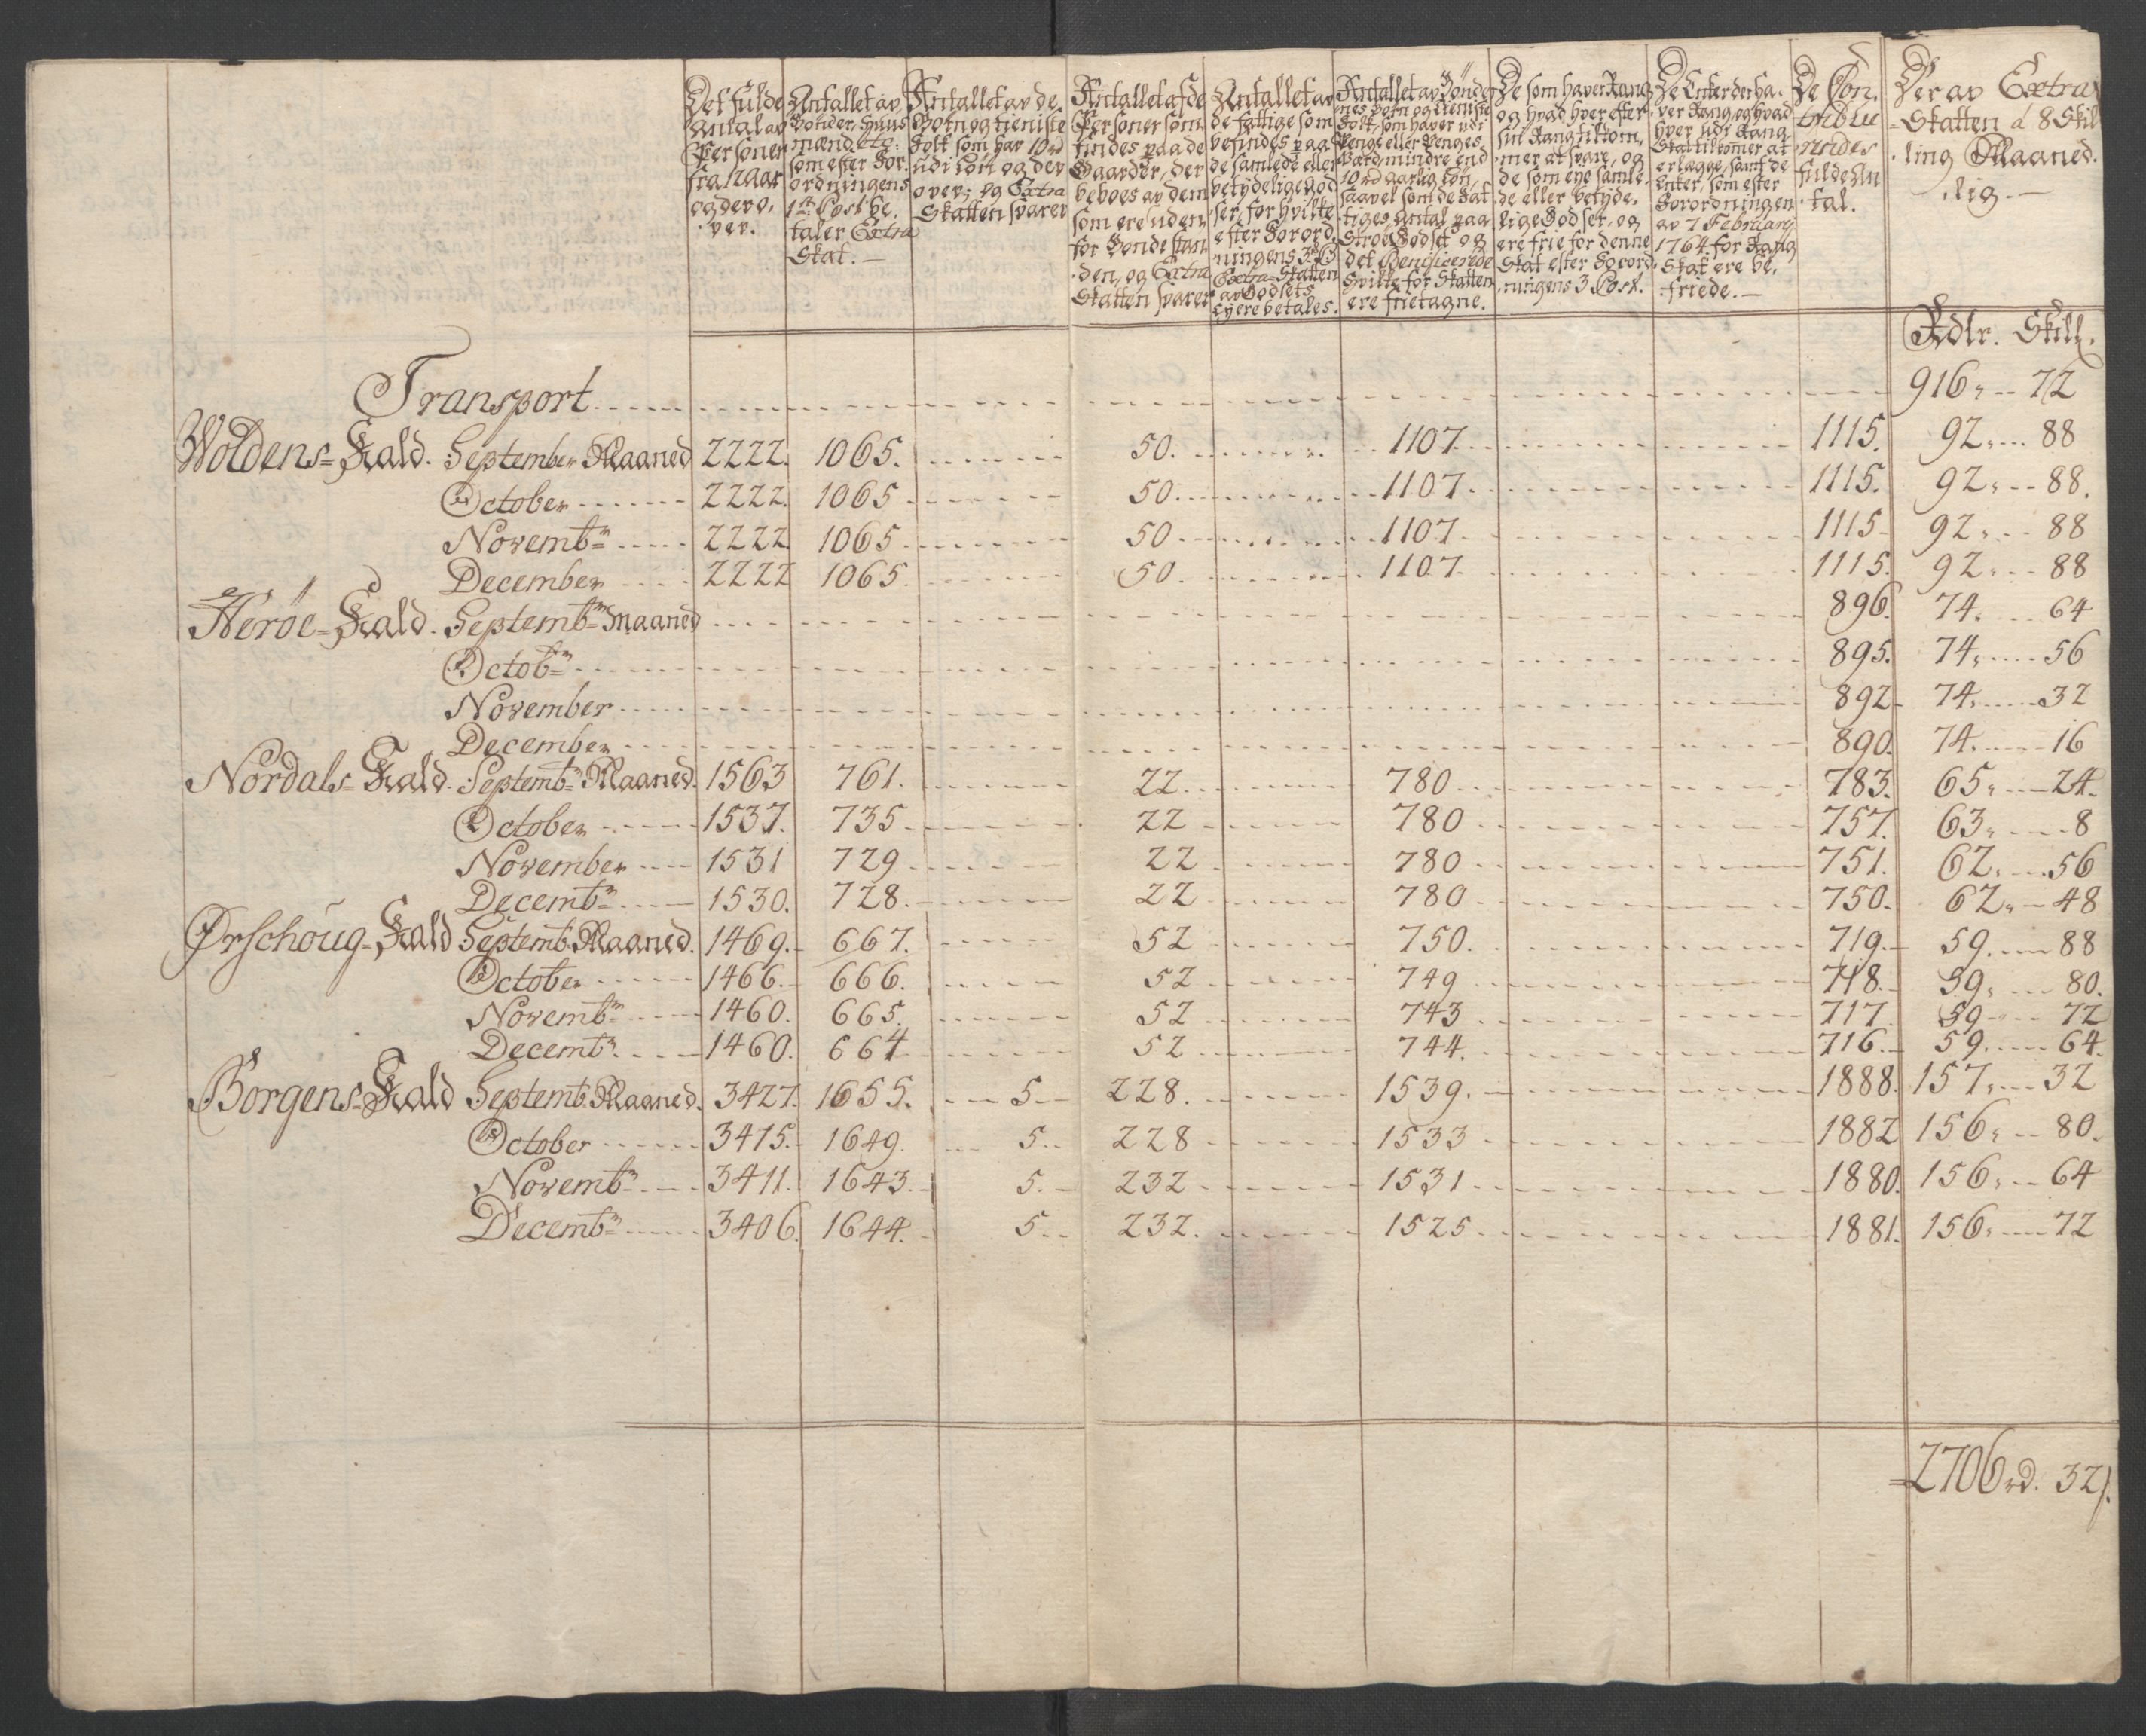 Det fulde
Antal av
Personer
fra 12 aar
og dero,
ver.
Antallet av
Bønder, Huus
mænd etc:
som efter For,
ordningens
1ste Post be,
taler Extra
Skat. —
Antallet av de
Børn og tieniste
Folk som har 10 rd
udi Løn og der
over; og Extra
Skatten svarer
Antallet af de
Personer som
findes paa de
Gaarder, der
beboes av dem
som ere uden
for Bondestan,
den, og Extra
Skatten svarer
Antallet av
de fattige som
befindes paa
de samlede eller
betydelige God
ser, for hvilke
efter Forord,
ningens 3die §
Extra-Skatten
av Godsets
Ejere betales.
Antallet av Bønder
nes Børn og tieniste
Folk, som haver udi
Penge eller Penges
Værd, mindre end
10 rd aarlig Løn,
saavel som de Fat
tiges Antal paa
Strøe Godset og
det Beneficerede
hvilke for Skatten
ere frietagne.
De som haver Rang
og hvad hver efter
sin Rang tilkom,
mer at svare, og
de som eye samle,
de eller betyde,
lige Godser, og
ere frie for denne
Skat efter Forord,
ningens 3 Post.
De Enker der ha,
ver Rang, og hvad
hver udi Rang
Skat tilkomer at
erlægge, samt de
Enker, som efter
Forordningen
av 7 February
1764 for Rang
Skat ere be,
friede. —
De Con,
tribue
rendes
fulde An
tal.
Der av Extra
Skatten á 8 Skil
ling Maaned,
lig —
Rdlr. Skill.
Transport 916 72
Woldens-Gield. September Maaned 2222. 1065. 50. 1107 1115. 92 88
October 2222. 1065 50. 1107 1115. 92 88.
Novembr 2222 1065 50 1107 1115 92 88
December 2222 1065 50. 1107 1115. 92 88
Herøe-Gield. Septembr Maaned 896. 74. 64
Octobr 895. 74, 56
November 892 74, 32
December 890. 74. 16
Nordals-Gield. Septembr Maaned. 1563 761. 22. 780 783. 65, 24.
October 1537. 735 22 780 757. 63, 8
November 1531 729 22 780 751. 62, 56
Decembr 1530. 728. 22 780 750. 62, 48
Ørschoug-Gield Septemb. Maaned. 1469. 667. 52 750. 719. 59. 88
October 1466. 666. 52 749 718. 59, 80.
Novembr 1460. 665. 52 743 717 59 72
Decembr 1460. 664 52 744. 716. 59. 64.
Borgens-Gield Septemb. Maaned. 3427. 1655. 5 228. 1539. 1888. 157, 32
October 3415. 1649. 5 228 1533 1882 156, 80.
Novembr 3411. 1643. 5. 232 1531 1880. 156, 64
Decembr 3406. 1644. 5 232. 1525 1881. 156, 72
2706 rd. 32 s.